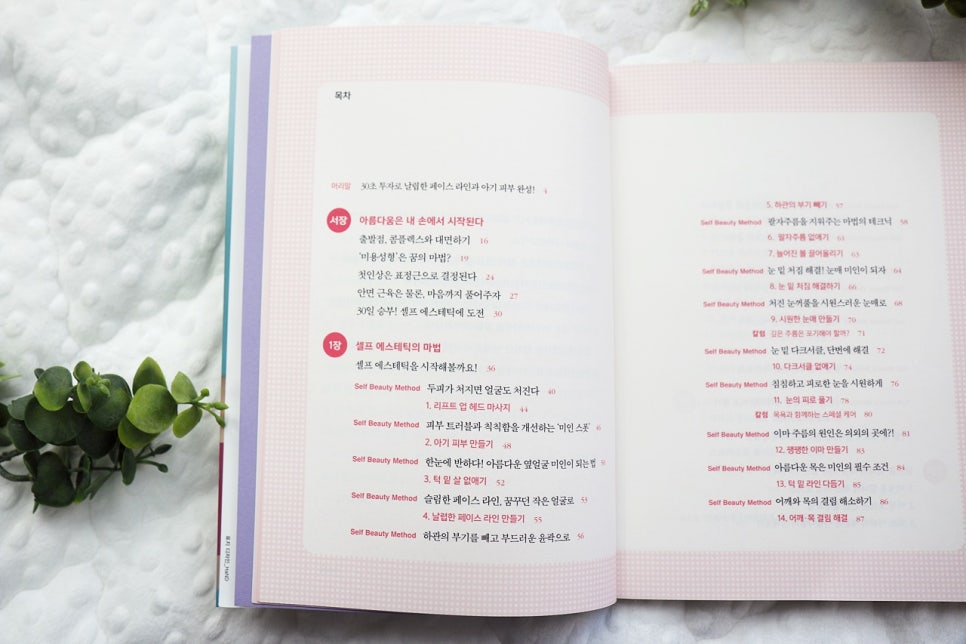 목차
머리말 30초 투자로 날렵한 페이스 라인과 아기 피부 완성! 4
서장 아름다움은 내 손에서 시작된다
출발점, 콤플렉스와 대면하기 16
'미용성형'은 꿈의 마법? 19
첫인상은 표정근으로 결정된다 24
안면 근육은 물론, 마음까지 풀어주자 27
30일 승부! 셀프 에스테틱에 도전 30
1장 셀프 에스테틱의 마법
셀프 에스테틱을 시작해볼까요! 36
Self Beauty Method 두피가 처지면 얼굴도 처진다 40
1. 리프트 업 헤드 마사지 44
Self Beauty Method 피부 트러블과 칙칙함을 개선하는 '미인 스폿'
2. 아기 피부 만들기 48
Self Beauty Method 한눈에 반하다! 아름다운 옆얼굴 미인이 되는 법
3. 턱 밑 살 없애기 52
Self Beauty Method 슬림한 페이스 라인, 꿈꾸던 작은 얼굴로 53
4. 날렵한 페이스 라인 만들기 55
Self Beauty Method 하관의 부기를 빼고 부드러운 윤곽으로 56
표지 디자인_HaND
5. 하관의 부기 빼기 57
Self Beauty Method 팔자주름을 지워주는 마법의 테크닉 58
6. 팔자주름 없애기 61
7. 늘어진 볼 끌어올리기 63
Self Beauty Method 눈 밑 처짐 해결! 눈매 미인이 되자 64
8. 눈 밑 처짐 해결하기 66
Self Beauty Method 처진 눈꺼풀을 시원스러운 눈매로 68
9. 시원한 눈매 만들기 70
칼럼 깊은 주름은 포기해야 할까? 71
Self Beauty Method 눈 밑 다크서클, 단번에 해결 72
10. 다크서클 없애기 74
Self Beauty Method 침침하고 피로한 눈을 시원하게 76
11. 눈의 피로 풀기 78
칼럼 목욕과 함께하는 스페셜 케어 80
Self Beauty Method 이마 주름의 원인은 의외의 곳에?! 81
12. 팽팽한 이마 만들기 83
Self Beauty Method 아름다운 목은 미인의 필수 조건 84
13. 턱 밑 라인 다듬기 85
Self Beauty Method 어깨와 목의 결림 해소하기 86
14. 어깨·목 결림 해결 87